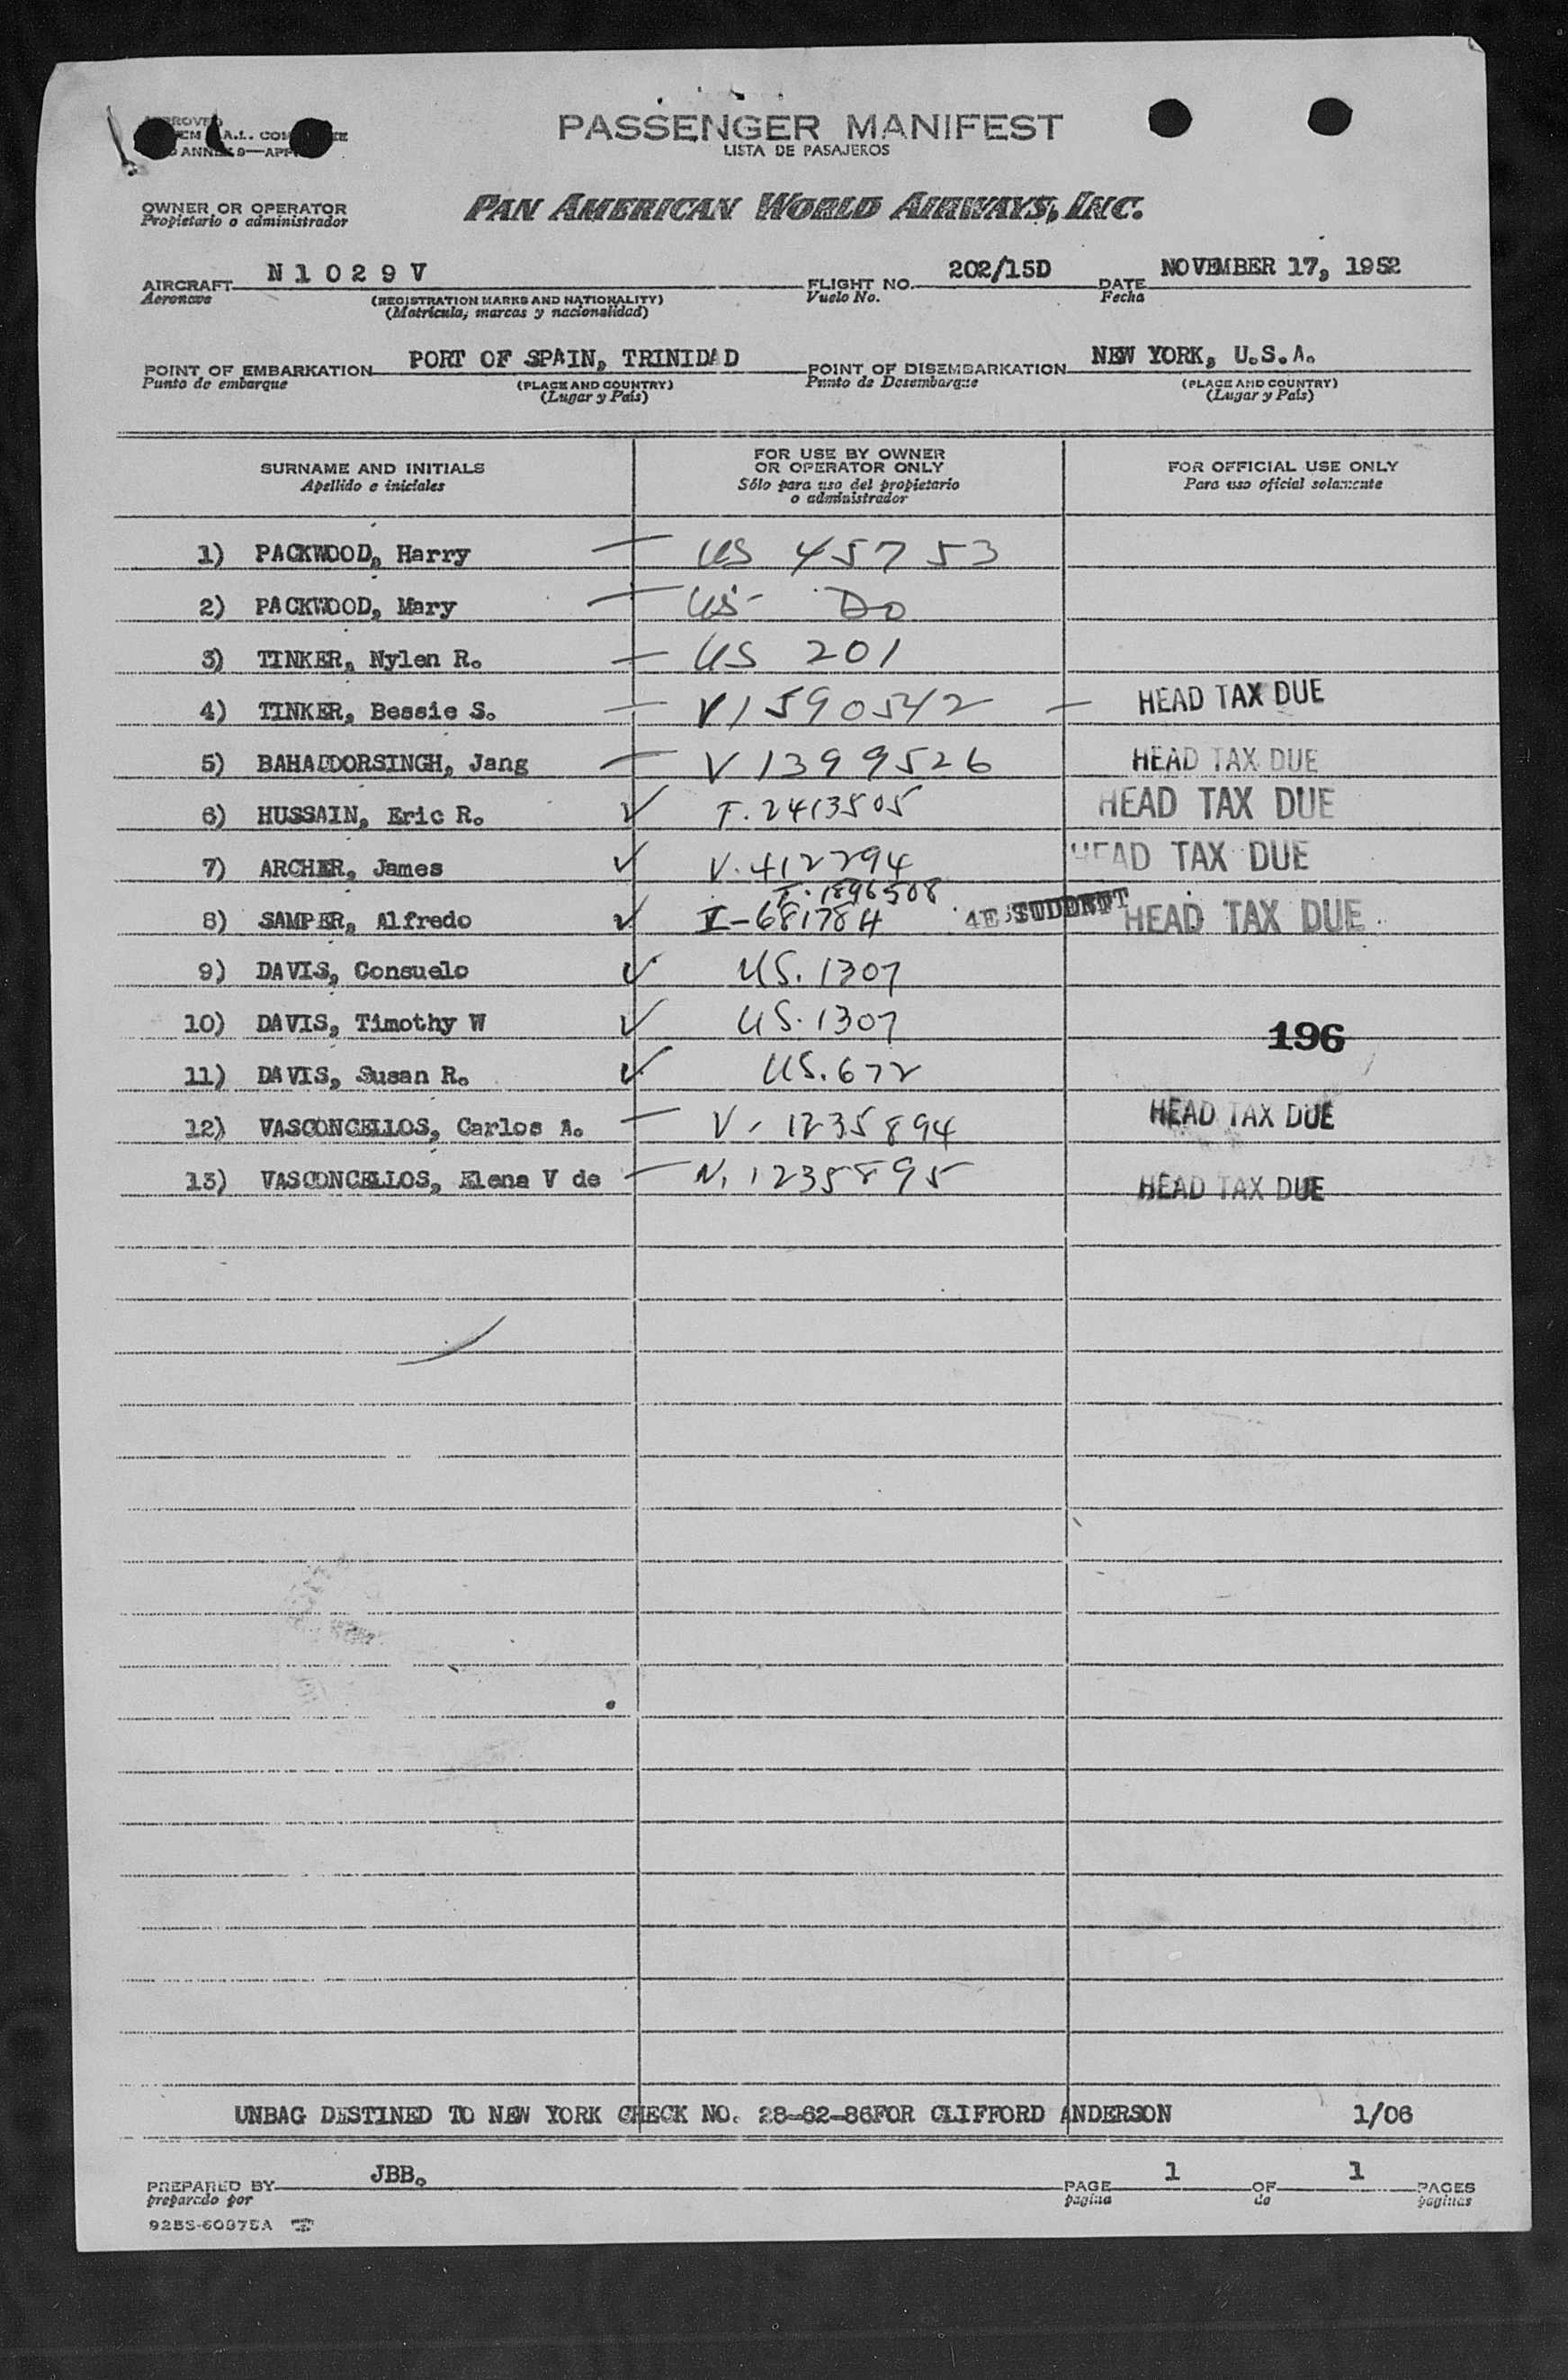 PASSENGER MANIFEST
LISTA DE PASAJEROS
OWNER OR OPERATOR
Propietario o administrador
PAN AMERICAN WORLD AIRWAYS, INC.
AIRCRAFT N 1 0 2 9 V FLIGHT NO. 202/15D DATE NOVEMBER 17, 1952
Aeronave (REGISTRATION MARKS AND NATIONALITY) Vuelo No. Fecha
(Matrícula, marcas y nacionalidad)
POINT OF EMBARKATION PORT OF SPAIN, TRINIDAD POINT OF DISEMBARKATION NEW YORK, U.S.A.
Punto de embarque (PLACE AND COUNTRY) Punto de Desembarque (PLACE AND COUNTRY)
(Lugar y País) (Lugar y País)
SURNAME AND INITIALS FOR USE BY OWNER OR OPERATOR ONLY FOR OFFICIAL USE ONLY
Apellido e iniciales Sólo para uso del propietario o administrador Para uso oficial solamente
1) PACKWOOD, Harry — US 45753
2) PACKWOOD, Mary — US - Do
3) TINKER, Nylen R. — US 201
4) TINKER, Bessie S. — V1590542 — HEAD TAX DUE
5) BAHADDORSINGH, Jang — V1399526 HEAD TAX DUE
6) HUSSAIN, Eric R. ✓ T. 2413505 HEAD TAX DUE
7) ARCHER, James ✓ V. 412294 HEAD TAX DUE
I. 1896508
8) SAMPER, Alfredo ✓ I-68178H 4E STUDENT HEAD TAX DUE
9) DAVIS, Consuelo ✓ US. 1307
10) DAVIS, Timothy W ✓ US. 1307 196
11) DAVIS, Susan R. ✓ US. 672
12) VASCONCELLOS, Carlos A. — V- 1235894 HEAD TAX DUE
13) VASCONCELLOS, Elena V de — N. 1235895 HEAD TAX DUE
UNBAG DESTINED TO NEW YORK CHECK NO. 28-62-86FOR CLIFFORD ANDERSON 1/06
PREPARED BY JBB. PAGE 1 OF 1 PAGES
preparado por página de páginas